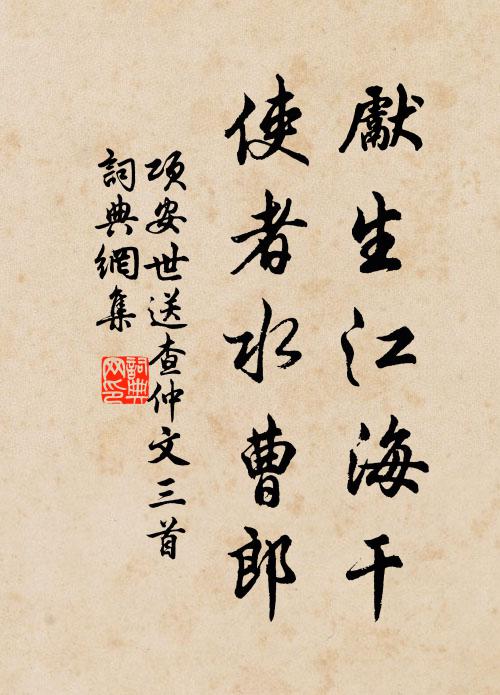 獻生江海干
使者水曹郎
項安世送查仲文三首
詞典網集
詞典
网印